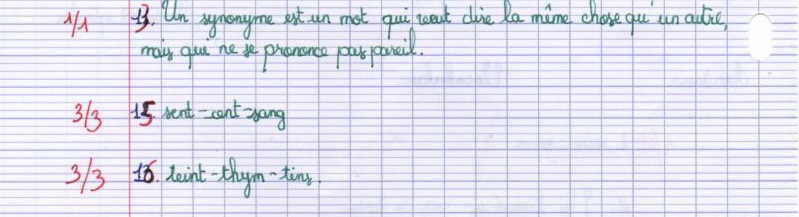 1/1 13. Un synonyme est un mot qui veut dire la même chose qu'un autre,
mais qui ne se prononce pas pareil.
3/3 15. sent - cent - sang
3/3 16. teint - thym - tins.